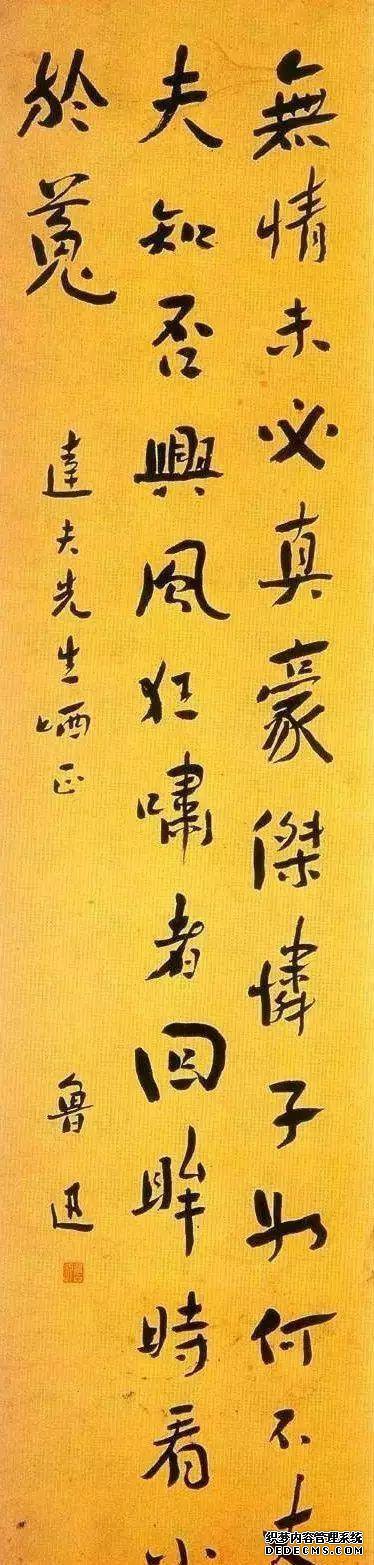 無情未必真豪傑憐子如何不
夫知否興風狂嘯者回眸時看
於菟
達夫先生哂正
魯迅
织梦内容管理系统
DEDECMS.COM